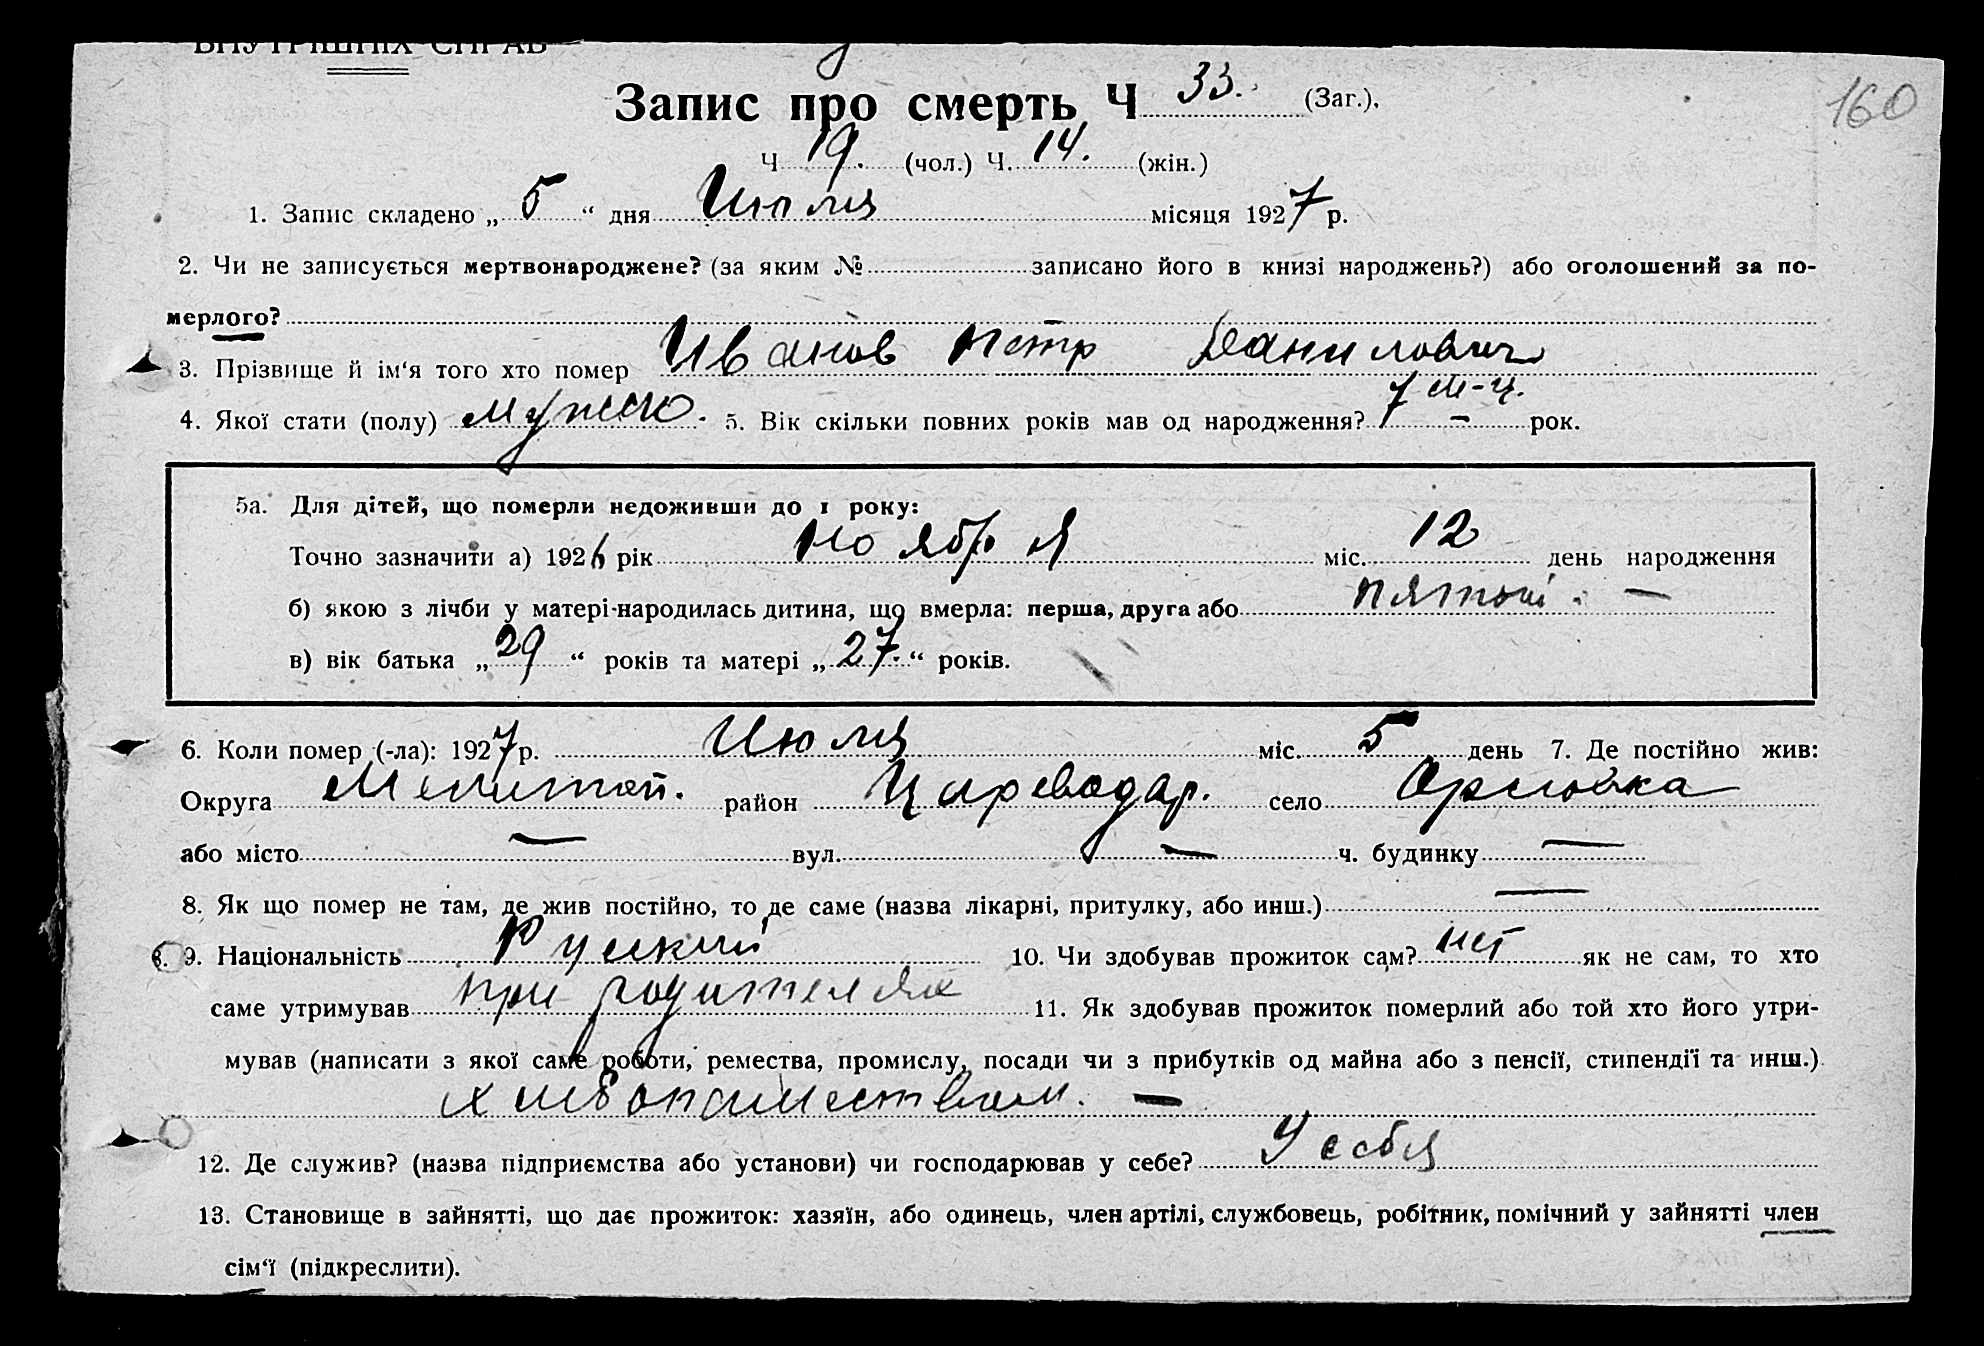 ВНУТРІШНІХ СПРАВ
160
Запис про смерть Ч 33. (Заг.).
Ч 19. (чол.) Ч. 14. (жін.)
1. Запис складено „ 5 “ дня Июля місяця 1927 р.
2. Чи не записується мертвонароджене? (за яким № записано його в книзі народжень?) або оголошений за по-
мерлого?
3. Прізвище й ім‘я того хто помер Иванов Петр Данилович
4. Якої стати (полу) мужско. 5. Вік скільки повних років мав од народження? 7 м-ц. — рок.
5а. Для дітей, що померли недоживши до 1 року:
Точно зазначити а) 1926 рік Ноября міс. 12 день народження
б) якою з лічби у матері народилась дитина, що вмерла: перша, друга або пятой. —
в) вік батька „ 29 “ років та матері „ 27. “ років.
6. Коли помер (-ла): 1927 р. Июля міс. 5 день 7. Де постійно жив:
Округа Мелитоп. район Цареводар. село Орловка
або місто — вул. — ч. будинку —
8. Як що помер не там, де жив постійно, то де саме (назва лікарні, притулку, або инш.) —
9. Національність Руский 10. Чи здобував прожиток сам? нет як не сам, то хто
саме утримував при родителях 11. Як здобував прожиток померлий або той хто його утри-
мував (написати з якої саме роботи, ремества, промислу, посади чи з прибутків од майна або з пенсії, стипендії та инш.)
хлебопашеством. —
12. Де служив? (назва підприємства або установи) чи господарював у себе? У себя
13. Становище в зайнятті, що дає прожиток: хазяїн, або одинець, член артілі, службовець, робітник, помічний у зайнятті член
сім‘ї (підкреслити).